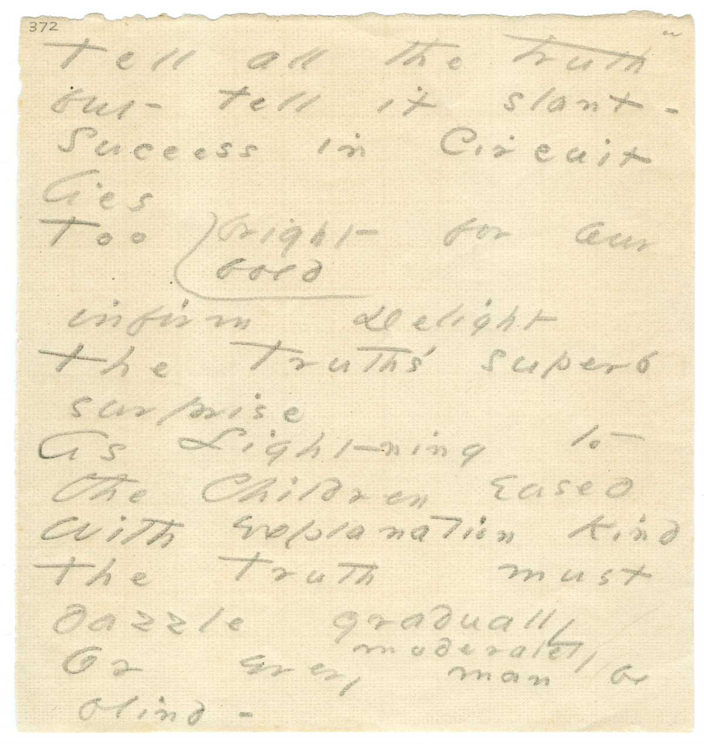 372
Tell all the truth
but tell it slant -
Success in Circuit
lies
Too bright for our
bold
infirm Delight
The Truth's superb
surprise
As Lightning to
the Children eased
With explanation kind
The Truth must
dazzle gradually
moderately
Or every man be
blind -